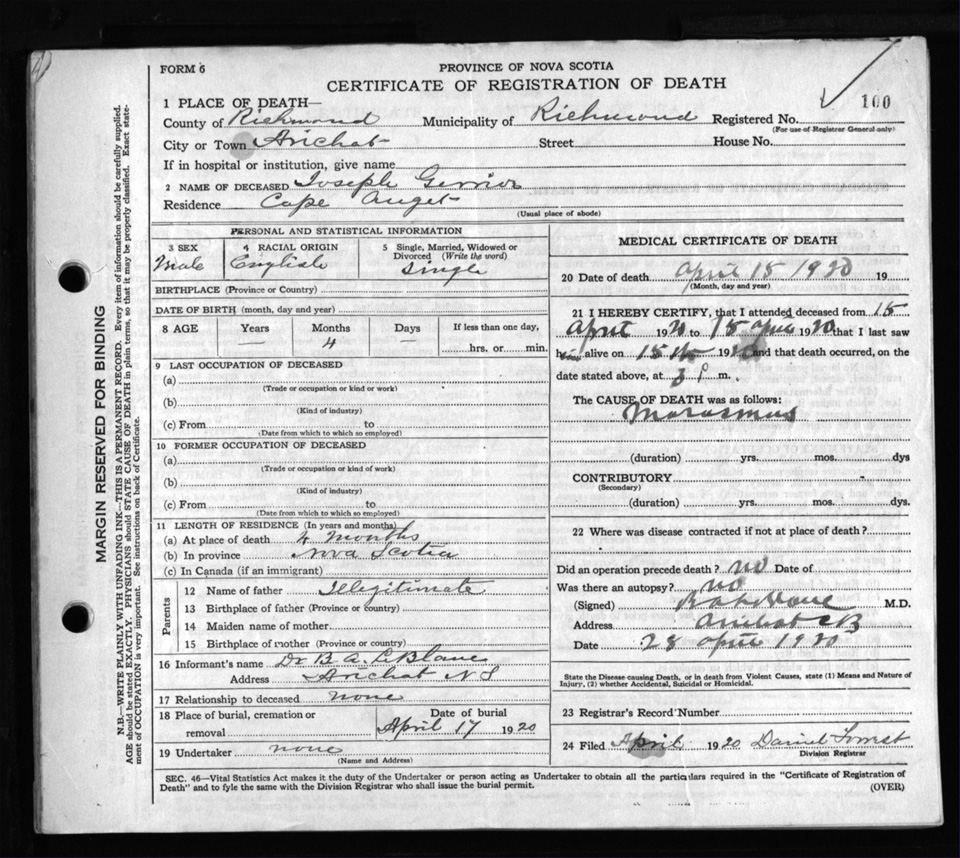 FORM 6
PROVINCE OF NOVA SCOTIA
CERTIFICATE OF REGISTRATION OF DEATH
100
1 PLACE OF DEATH—
County of Richmond Municipality of Richmond Registered No.
(For use of Registrar General only)
City or Town Arichat Street House No.
If in hospital or institution, give name
2 NAME OF DECEASED Joseph Gerrior
Residence Cape Auget
(Usual place of abode)
PERSONAL AND STATISTICAL INFORMATION
3 SEX Male
4 RACIAL ORIGIN English
5 Single, Married, Widowed or Divorced (Write the word) Single
BIRTHPLACE (Province or Country)
DATE OF BIRTH (month, day and year)
8 AGE Years Months Days If less than one day,
— 4 — hrs. or min.
9 LAST OCCUPATION OF DECEASED
(a)
(Trade or occupation or kind or work)
(b)
(Kind of industry)
(c) From to
(Date from which to which so employed)
10 FORMER OCCUPATION OF DECEASED
(a)
(Trade or occupation or kind of work)
(b)
(Kind of industry)
(c) From to
(Date from which to which so employed)
11 LENGTH OF RESIDENCE (In years and months)
(a) At place of death 4 months
(b) In province Nova Scotia
(c) In Canada (if an immigrant)
Parents
12 Name of father Illegitimate
13 Birthplace of father (Province or country)
14 Maiden name of mother
15 Birthplace of mother (Province or country)
16 Informant's name Dr B. A. LeBlanc
Address Arichat N S
17 Relationship to deceased none
18 Place of burial, cremation or removal
Date of burial
April 17 1920
19 Undertaker none
(Name and Address)
MEDICAL CERTIFICATE OF DEATH
20 Date of death April 15 1920 19
(Month, day and year)
21 I HEREBY CERTIFY, that I attended deceased from 15
April 1920 to 15 April 1920 that I last saw
him alive on 15th 1920 and that death occurred, on the
date stated above, at 3 P m.
The CAUSE OF DEATH was as follows:
Marasmus
(duration) yrs. mos. dys
CONTRIBUTORY
(Secondary)
(duration) yrs. mos. dys.
22 Where was disease contracted if not at place of death?
Did an operation precede death? no Date of
Was there an autopsy? no
(Signed) M.D.
Address Arichat CB
Date 28 April 1920
State the Disease causing Death, or in death from Violent Causes, state (1) Means and Nature of
Injury, (2) whether Accidental, Suicidal or Homicidal.
23 Registrar's Record Number
24 Filed April 1920 Daniel
Division Registrar
SEC. 46—Vital Statistics Act makes it the duty of the Undertaker or person acting as Undertaker to obtain all the particulars required in the "Certificate of Registration of
Death" and to fyle the same with the Division Registrar who shall issue the burial permit.
(OVER)
MARGIN RESERVED FOR BINDING
N.B.—WRITE PLAINLY WITH UNFADING INK—THIS IS A PERMANENT RECORD. Every item of information should be carefully supplied.
AGE should be stated EXACTLY. PHYSICIANS should STATE CAUSE OF DEATH in plain terms, so that it may be properly classified. Exact state-
ment of OCCUPATION is very important. See instructions on back of Certificate.